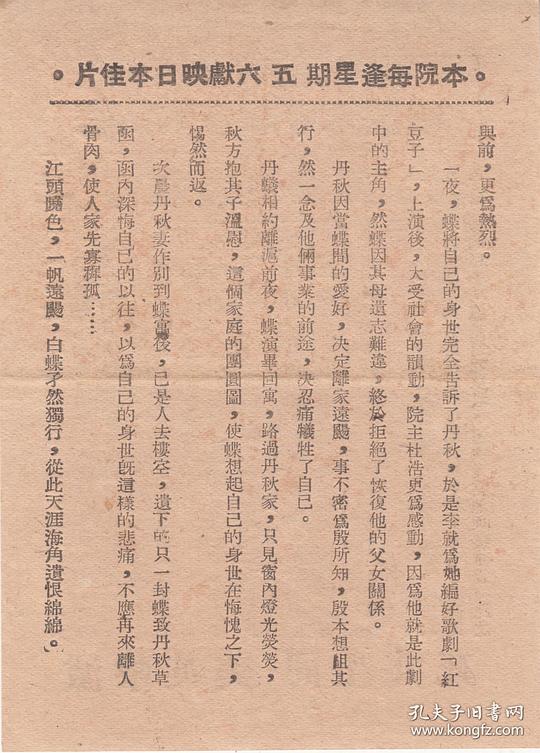 。本院每逢星期五六獻映日本佳片。
與前，更爲熱烈。
一夜，蝶將自己的身世完全告訴了丹秋，於是李就爲她編好歌劇「紅
豆子」，上演後，大受社會的韻動，院主杜浩更爲感動，因爲他就是此劇
中的主角，然蝶因其母遺志難違，終於拒絕了恢復他的父女關係。
丹秋因當蝶間的愛好，决定離家遠颺，事不密爲殷所知，殷本想詛其
行，然一念及他倆事業的前途，决忍痛犧牲了自己。
丹蠙相約離滬前夜，蝶演畢回寓，路過丹秋家，只見窗內燈光熒熒，
秋方抱其子溫慰，這個家庭的團圓圖，使蝶想起自己的身世在悔愧之下，
惕然而返。
次晨丹秋妻作別到蝶寓後，已是人去樓空，遺下的只一封蝶致丹秋草
函，函內深悔自己的以往，以爲自己的身世旣這樣的悲痛，不應再來離人
骨肉，使人家先寡稚孤……
江頭曉色，一帆遠颺，白蝶孑然獨行，從此天涯海角遺恨綿綿。」
孔夫子旧书网
www.kongfz.com